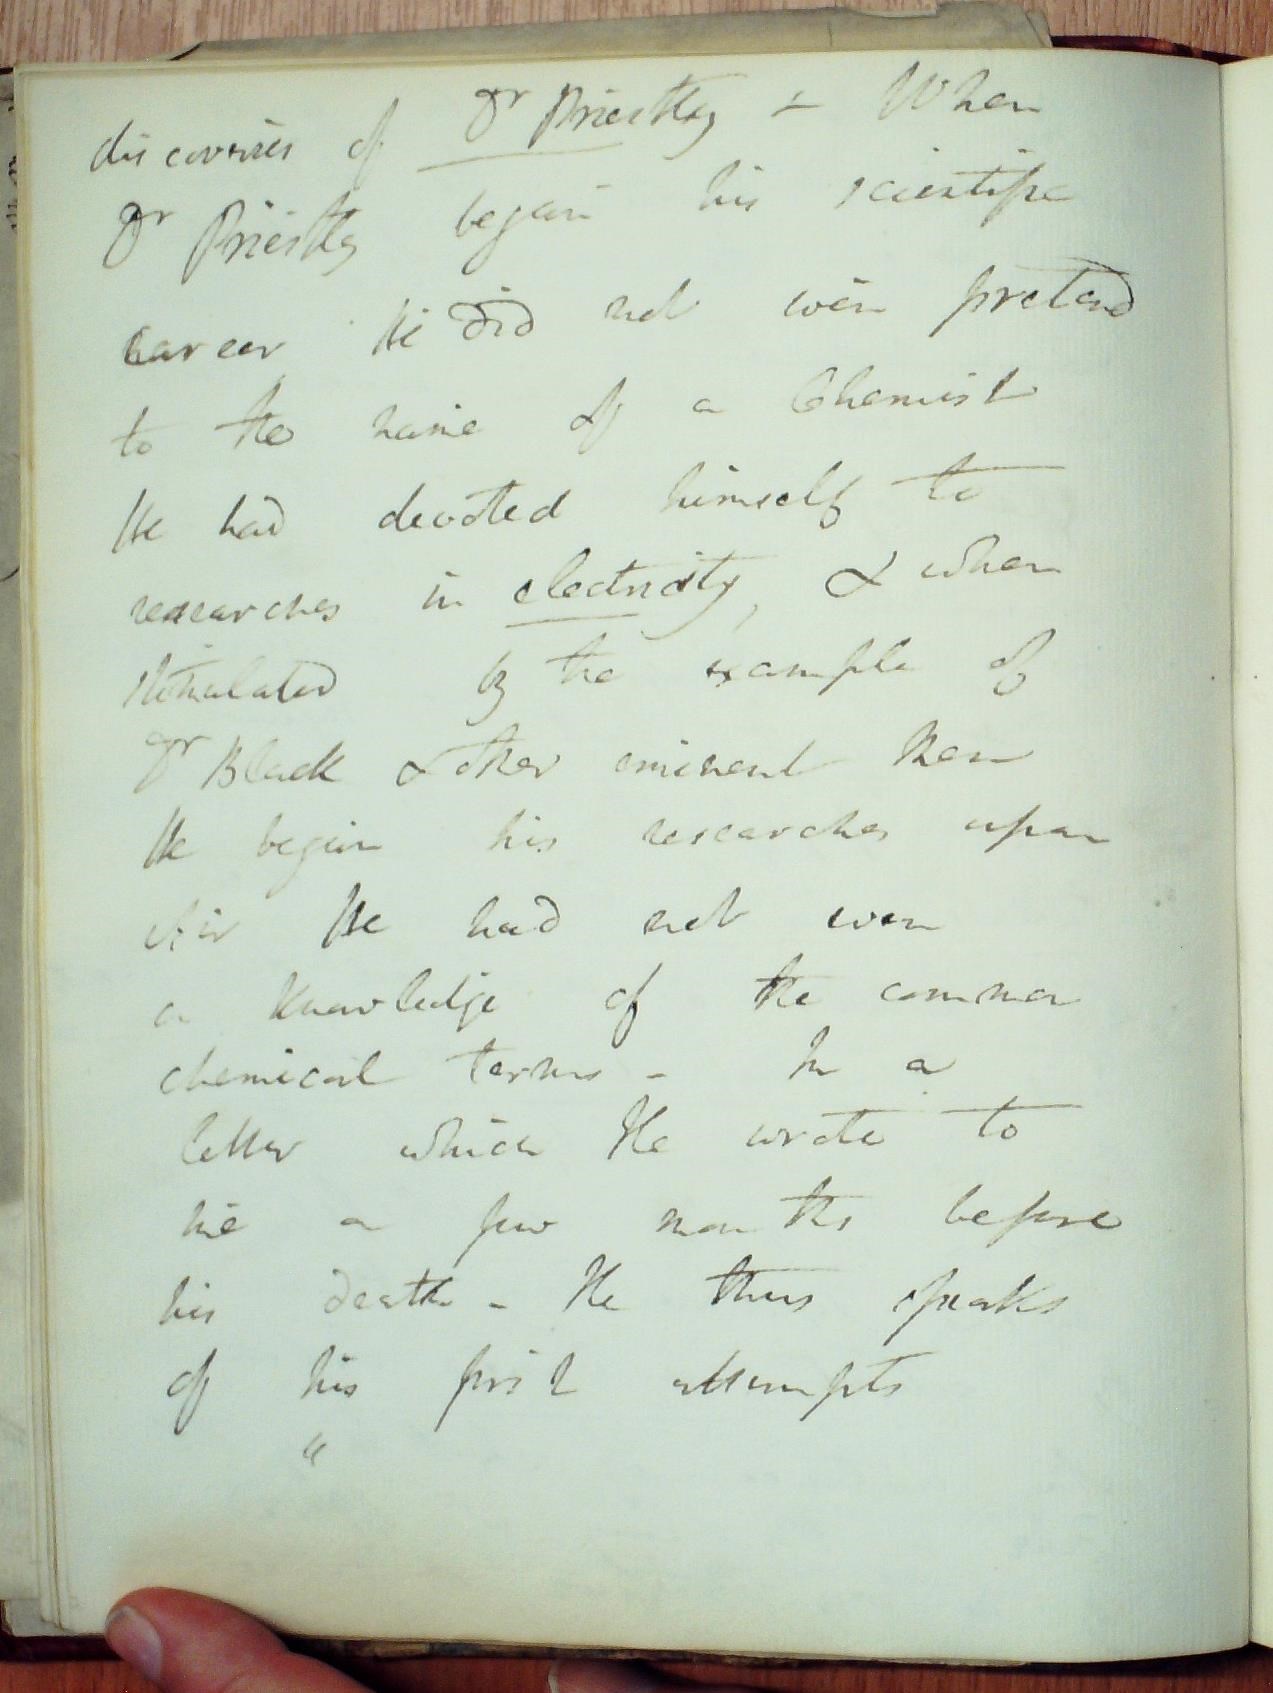 discoveries of Dr Priestley - When
Dr Priestley began his scientific
career He did not even pretend
to the name of a Chemist
He had devoted himself to
researches in electricity, & when
stimulated by the example of
Dr Black & other eminent Men
He began his researches upon
Air He had not even
a knowledge of the common
chemical terms - In a
letter which He wrote to
me a few months before
his death - He thus speaks
of his first attempts
"